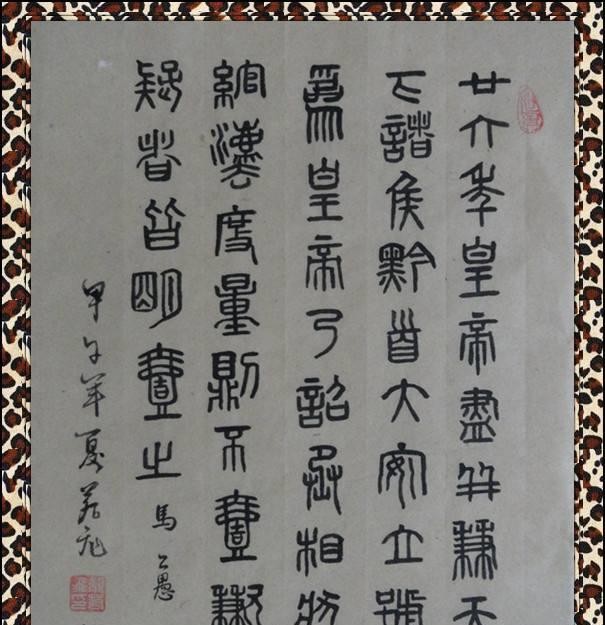 廿六年皇帝盡并兼天
下諸侯黔首大安立號
爲皇帝乃詔丞相狀
綰灋度量則不壹歉
疑者皆明壹之 馬公愚
甲午年夏若